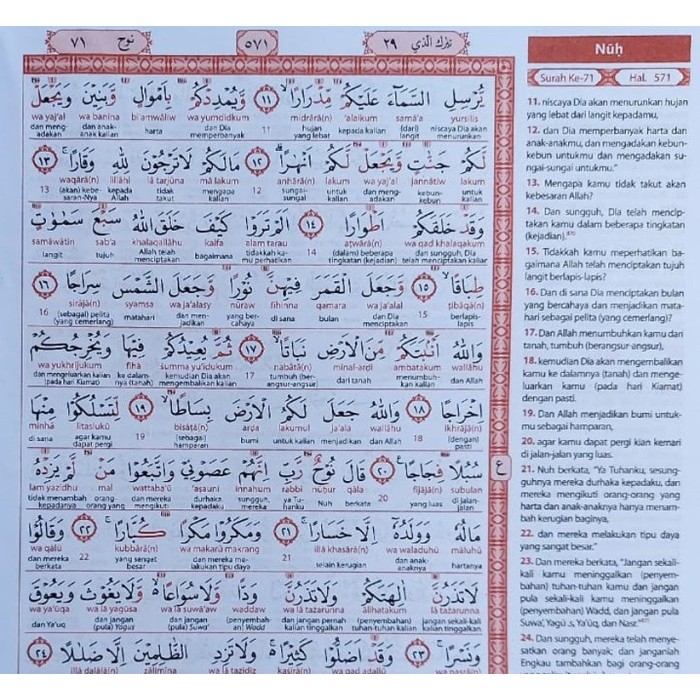 نوح ٧١
٥٧١
تبرك الذي ٢٩
يُرْسِلِ السَّمَاۤءَ عَلَيْكُمْ مِّدْرَارًا ۙ ١١ وَّيُمْدِدْكُمْ بِاَمْوَالٍ وَّبَنِيْنَ وَيَجْعَلْ
yursilis samā'a 'alaikum midrārā(n) 11 wa yumdidkum bi'amwāliw wa banīna wa yaj'al
niscaya Dia akan menurunkan (dari) langit kepada kalian hujan yang lebat dan Dia memperbanyak harta dan anak-anak kalian dan mengadakan
لَّكُمْ جَنّٰتٍ وَّيَجْعَلْ لَّكُمْ اَنْهٰرًا ۗ ١٢ مَا لَكُمْ لَا تَرْجُوْنَ لِلّٰهِ وَقَارًا ۚ ١٣
lakum jannātiw wa yaj'al lakum anhārā(n) 12 mā lakum lā tarjūna lillāhi waqārā(n) 13
untuk kalian kebun-kebun dan mengadakan untuk kalian sungai-sungai mengapa kalian tidak takut kepada Allah (akan) kebesaran-Nya
وَقَدْ خَلَقَكُمْ اَطْوَارًا ١٤ اَلَمْ تَرَوْا كَيْفَ خَلَقَ اللّٰهُ سَبْعَ سَمٰوٰتٍ
wa qad khalaqakum aṭwārā(n) 14 alam tarau kaifa khalaqallāhu sab'a samāwātin
dan sungguh, Dia telah menciptakan kalian (dalam) beberapa tingkatan (kejadian) tidakkah kamu perhatikan bagaimana Allah telah menciptakan tujuh langit
طِبَاقًا ۙ ١٥ وَّجَعَلَ الْقَمَرَ فِيْهِنَّ نُوْرًا وَّجَعَلَ الشَّمْسَ سِرَاجًا ١٦
ṭibāqā(n) 15 wa ja'alal qamara fīhinna nūraw wa ja'alasy syamsa sirājā(n) 16
berlapis-lapis dan Dia menciptakan bulan di sana yang bercahaya dan menjadikan matahari (sebagai) pelita (yang cemerlang)
وَاللّٰهُ اَنْۢبَتَكُمْ مِّنَ الْاَرْضِ نَبَاتًا ۙ ١٧ ثُمَّ يُعِيْدُكُمْ فِيْهَا وَيُخْرِجُكُمْ
wallāhu ambatakum minal-arḍi nabātā(n) 17 summa yu'īdukum fīhā wa yukhrijukum
dan Allah menumbuhkan kalian dari tanah tumbuh (berangsur-angsur) kemudian Dia mengembalikan kalian ke dalamnya (tanah) dan mengeluarkan kalian (pada hari Kiamat)
اِخْرَاجًا ١٨ وَاللّٰهُ جَعَلَ لَكُمُ الْاَرْضَ بِسَاطًا ۙ ١٩ لِّتَسْلُكُوْا مِنْهَا
ikhrājā(n) 18 wallāhu ja'ala lakumul arḍa bisāṭā(n) 19 litaslukū minhā
(dengan) pasti dan Allah menjadikan untuk kalian bumi (sebagai) hamparan agar kamu dapat pergi di sana
سُبُلًا فِجَاجًا ࣖ ٢٠ قَالَ نُوْحٌ رَّبِّ اِنَّهُمْ عَصَوْنِيْ وَاتَّبَعُوْا مَنْ لَّمْ يَزِدْهُ
subulan fijājā(n) 20 qāla nūḥur rabbi innahum 'aṣaunī wattaba'ū mal lam yazidhu
di jalan-jalan yang luas berkata Nuh ya Tuhanku sesungguhnya mereka durhaka kepadaku dan mereka mengikuti orang-orang yang tidak menambah
مَالُهٗ وَوَلَدُهٗٓ اِلَّا خَسَارًا ۚ ٢١ وَمَكَرُوْا مَكْرًا كُبَّارًا ۚ ٢٢ وَقَالُوْا
māluhū wa waladuhū illā khasārā(n) 21 wa makarū makran kubbārā(n) 22 wa qālū
hartanya dan anaknya selain kerugian dan mereka melakukan tipu daya yang sangat besar dan mereka berkata
لَا تَذَرُنَّ اٰلِهَتَكُمْ وَلَا تَذَرُنَّ وَدًّا وَّلَا سُوَاعًا ەۙ وَّلَا يَغُوْثَ وَيَعُوْقَ
lā tażarunna ālihatakum wa lā tażarunna waddaw wa lā suwā'aw wa lā yagūsa wa ya'ūqa
jangan kalian tinggalkan tuhan-tuhan kalian dan jangan pernah kalian tinggalkan (penyembahan) Wadd dan jangan (pula) Suwa' dan jangan (pula) Yagus dan Ya'uq
وَنَسْرًا ۚ ٢٣ وَقَدْ اَضَلُّوْا كَثِيْرًا ەۚ وَلَا تَزِدِ الظّٰلِمِيْنَ اِلَّا ضَلٰلًا ٢٤
ع
Nūḥ
Surah Ke-71 Hal. 571
11. niscaya Dia akan menurunkan hujan
yang lebat dari langit kepadamu,
12. dan Dia memperbanyak harta dan
anak-anakmu, dan mengadakan kebun-
kebun untukmu dan mengadakan su-
ngai-sungai untukmu."
13. Mengapa kamu tidak takut akan
kebesaran Allah?
14. Dan sungguh, Dia telah mencip-
takan kamu dalam beberapa tingkatan
(kejadian).
15. Tidakkah kamu meperhatikan ba-
gaimana Allah telah menciptakan tujuh
langit berlapis-lapis?
16. Dan di sana Dia menciptakan bulan
yang bercahaya dan menjadikan mata-
hari sebagai pelita (yang cemerlang)?
17. Dan Allah menumbuhkan kamu dari
tanah, tumbuh (berangsur-angsur),
18. kemudian Dia akan mengembalikan
kamu ke dalamnya (tanah) dan menge-
luarkan kamu (pada hari Kiamat)
dengan pasti.
19. Dan Allah menjadikan bumi untuk-
mu sebagai hamparan,
20. agar kamu dapat pergi kian kemari
di jalan-jalan yang luas.
21. Nuh berkata, "Ya Tuhanku, sesung-
guhnya mereka durhaka kepadaku, dan
mereka mengikuti orang-orang yang
harta dan anak-anaknya hanya menam-
bah kerugian baginya,
22. dan mereka melakukan tipu daya
yang sangat besar."
23. Dan mereka berkata, "Jangan sekali-
kali kamu meninggalkan (penyem-
bahan) tuhan-tuhan kamu dan jangan
pula sekali-kali kamu meninggalkan
(penyembahan) Wadd, dan jangan pula
Suwa', Yagūs, Ya'ūq, dan Nasr."
24. Dan sungguh, mereka telah menye-
satkan orang banyak; dan janganlah
Engkau tambahkan bagi orang-orang